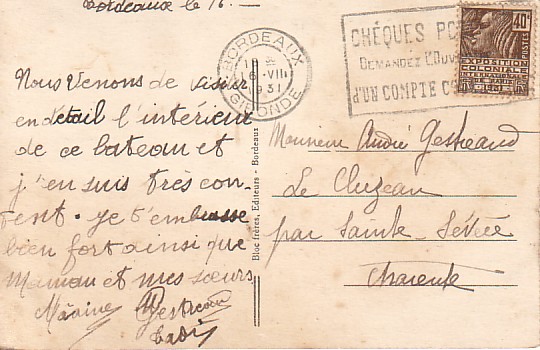 Bordeaux le 16. —
Nous venons de visiter
en détail l'intérieur
de ce bateau et
j'en suis très con-
tent. je t'embrasse
bien fort ainsi que
Maman et mes sœurs
BORDEAUX
16 - VII
1931
GIRONDE
CHÉQUES PO
DEMANDEZ L'OUV
D'UN COMPTE C
40c
POSTES
EXPOSITION
COLONIALE
INTERNATIONALE
PARIS 1931
Bloc frères, Editeurs - Bordeaux
Monsieur André
Le Cluzeau
par Sainte-Sévère
Charente